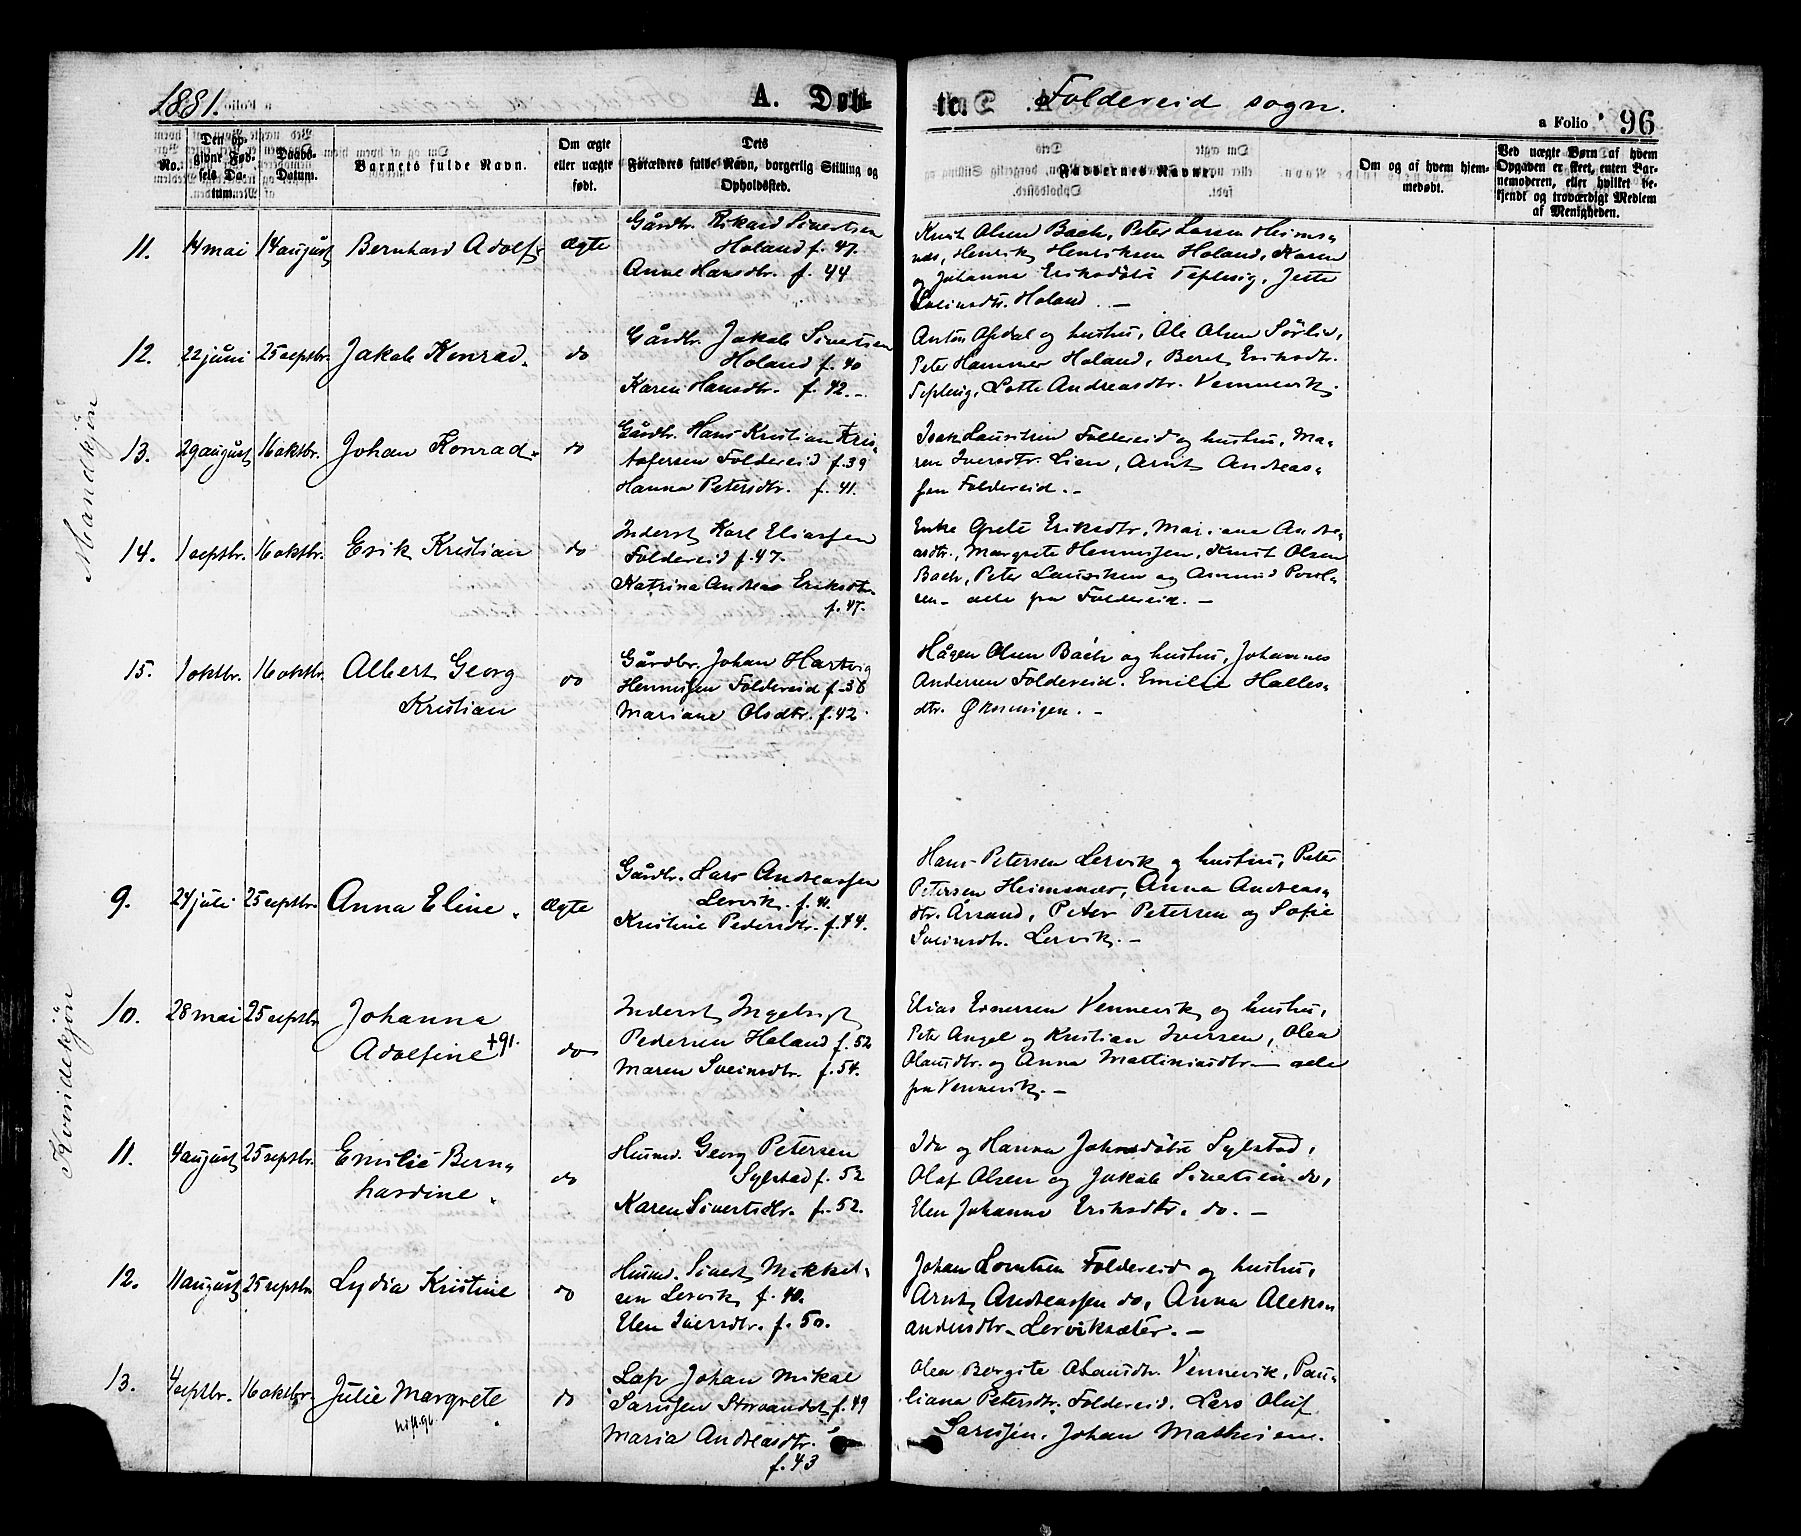 1881.
A. Døb-
te.
Foldereid sogn.
a Folio 96
No.
Den op-
givne Fød-
sels Da-
tum.
Daabs-
Datum.
Barnets fulde Navn.
Om ægte
eller uægte
født.
Dets
Forældres fulde Navn, borgerlig Stilling og
Opholdssted.
Faddernes Navne.
Om og af hvem hjem-
medøbt.
Ved uægte Børn af hvem
Opgaven er skeet, enten Bar-
nemoderen, eller hvilket be-
kjendt og troværdigt Medlem
af Menigheden.
Mandkjön
11. 14 mai 14 august Bernhard Adolf ægte
Gårdbr. Rikard Sivertsen
Holand f. 47.
Anne Hansdtr. f. 44
Knut Olsen Bach, Peter Lorens Heims-
næs, Henrik Henriksen Holand, Karen
og Johanna Eriksdötr Tepling, Jette
Sveinsdtr. Holand. -
12. 22 juni 25 septbr. Jakob Konrad. do
Gårdbr. Jakob Sivertsen
Holand f. 40
Karen Hansdtr. f. 42.-
Anton Opdal og hustru, Ole Olsen Sörliv,
Peter Hammer Holand, Beret Eriksdtr.
Tepling, Lotte Andreasdtr. Vennevik.
13. 29 august 16 oktbr. Johan Konrad. do
Gårdbr. Hans Kristian Kris-
tofersen Foldereid f. 39
Hanna Petersdtr. f. 41.
Isak Lauritsen Foldereid og hustru, Ma-
ren Iversdtr. Lien, Arnt Andreas-
sen Foldereid. -
14. 1 septbr. 16 oktbr. Erik Kristian do
Inderst Karl Eliassen
Foldereid f. 47.
Katrina Andrea Eriksdtr.
f. 47.
Enke Grete Eriksdtr, Mariane Andre-
asdtr., Margrete Henningsen, Knut Olsen
Bach, Peter Lauriksen og Amund Povel-
sen - alle fra Foldereid. -
15. 1 oktbr. 16 oktbr. Albert Georg
Kristian do
Gårdbr. Johan Hartvig
Henningsen Foldereid f. 38
Mariane Olsdtr. f. 42.
Hågen Olsen Bach og hustru, Johannes
Andersen Foldereid. Emilie Halles-
dtr. Øksningen. -
Kvindekjön
9. 24 juli 25 septbr. Anna Eline. ægte
Gårdbr. Lars Andreassen
Lervik. f. 41.
Kristine Pedersdtr. f. 44.
Hans Petersen Lervik og hustru, Peter
Petersen Heimsnæs, Anna Andreas-
dtr. Årsand, Peter Petersen og Sofie
Sveinsdtr. Lervik. -
10. 28 mai 25 septbr Johanna
Adolfine +91. do
Inderst Ingebrigt
Pedersen Holand f. 52
Maren Sveinsdtr. f. 54.
Elias Einersen Vennevik og hustru,
Peter Angel og Kristian Iversen, Olea
Olausdtr. og Anna Martiniusdtr. - alle
fra Vennevik. -
11. 4 august 25 septbr. Emilie Bern-
hardine. do
Husmd. Georg Petersen
Sylstad f. 52
Karen Sivertsdtr. f. 52.
Ida og Hanna Johnsdötr Sylstad,
Olaf Olsen og Jakob Sivertsen do,
Elen Johanna Eriksdtr. do. -
12. 11 august 25 septbr. Lydia Kristine do
Husmd. Sivert Mikkel-
sen Lervik f. 40.
Elen Iversdtr. f. 50.
Johan Lorntsen Foldereid og hustru,
Arnt Andreassen do, Anna Aleks-
andersdtr. Lerviksæter. -
13. 4 septbr. 16 oktbr. Julie Margrete do
Lap Johan Mikal
Sarusen Storvandet f. 49
Maria Andreasdtr.
f. 43
Olea Bergite Olausdtr. Vennevik, Pau-
liana Petersdtr. Foldereid, Lars Oluf
Sarusen, Johan Mathisen.